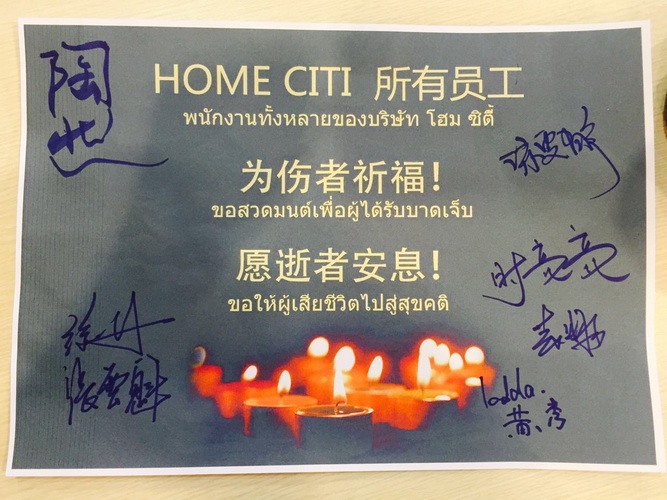 陶
HOME CITI 所有员工
พนักงานทั้งหลายของบริษัท โฮม ซิตี้
为伤者祈福!
ขอสวดมนต์เพื่อผู้ได้รับบาดเจ็บ
愿逝者安息!
ขอให้ผู้เสียชีวิตไปสู่สุขคติ
时亮亮
徐
張雲魁
ladda.
黄秀